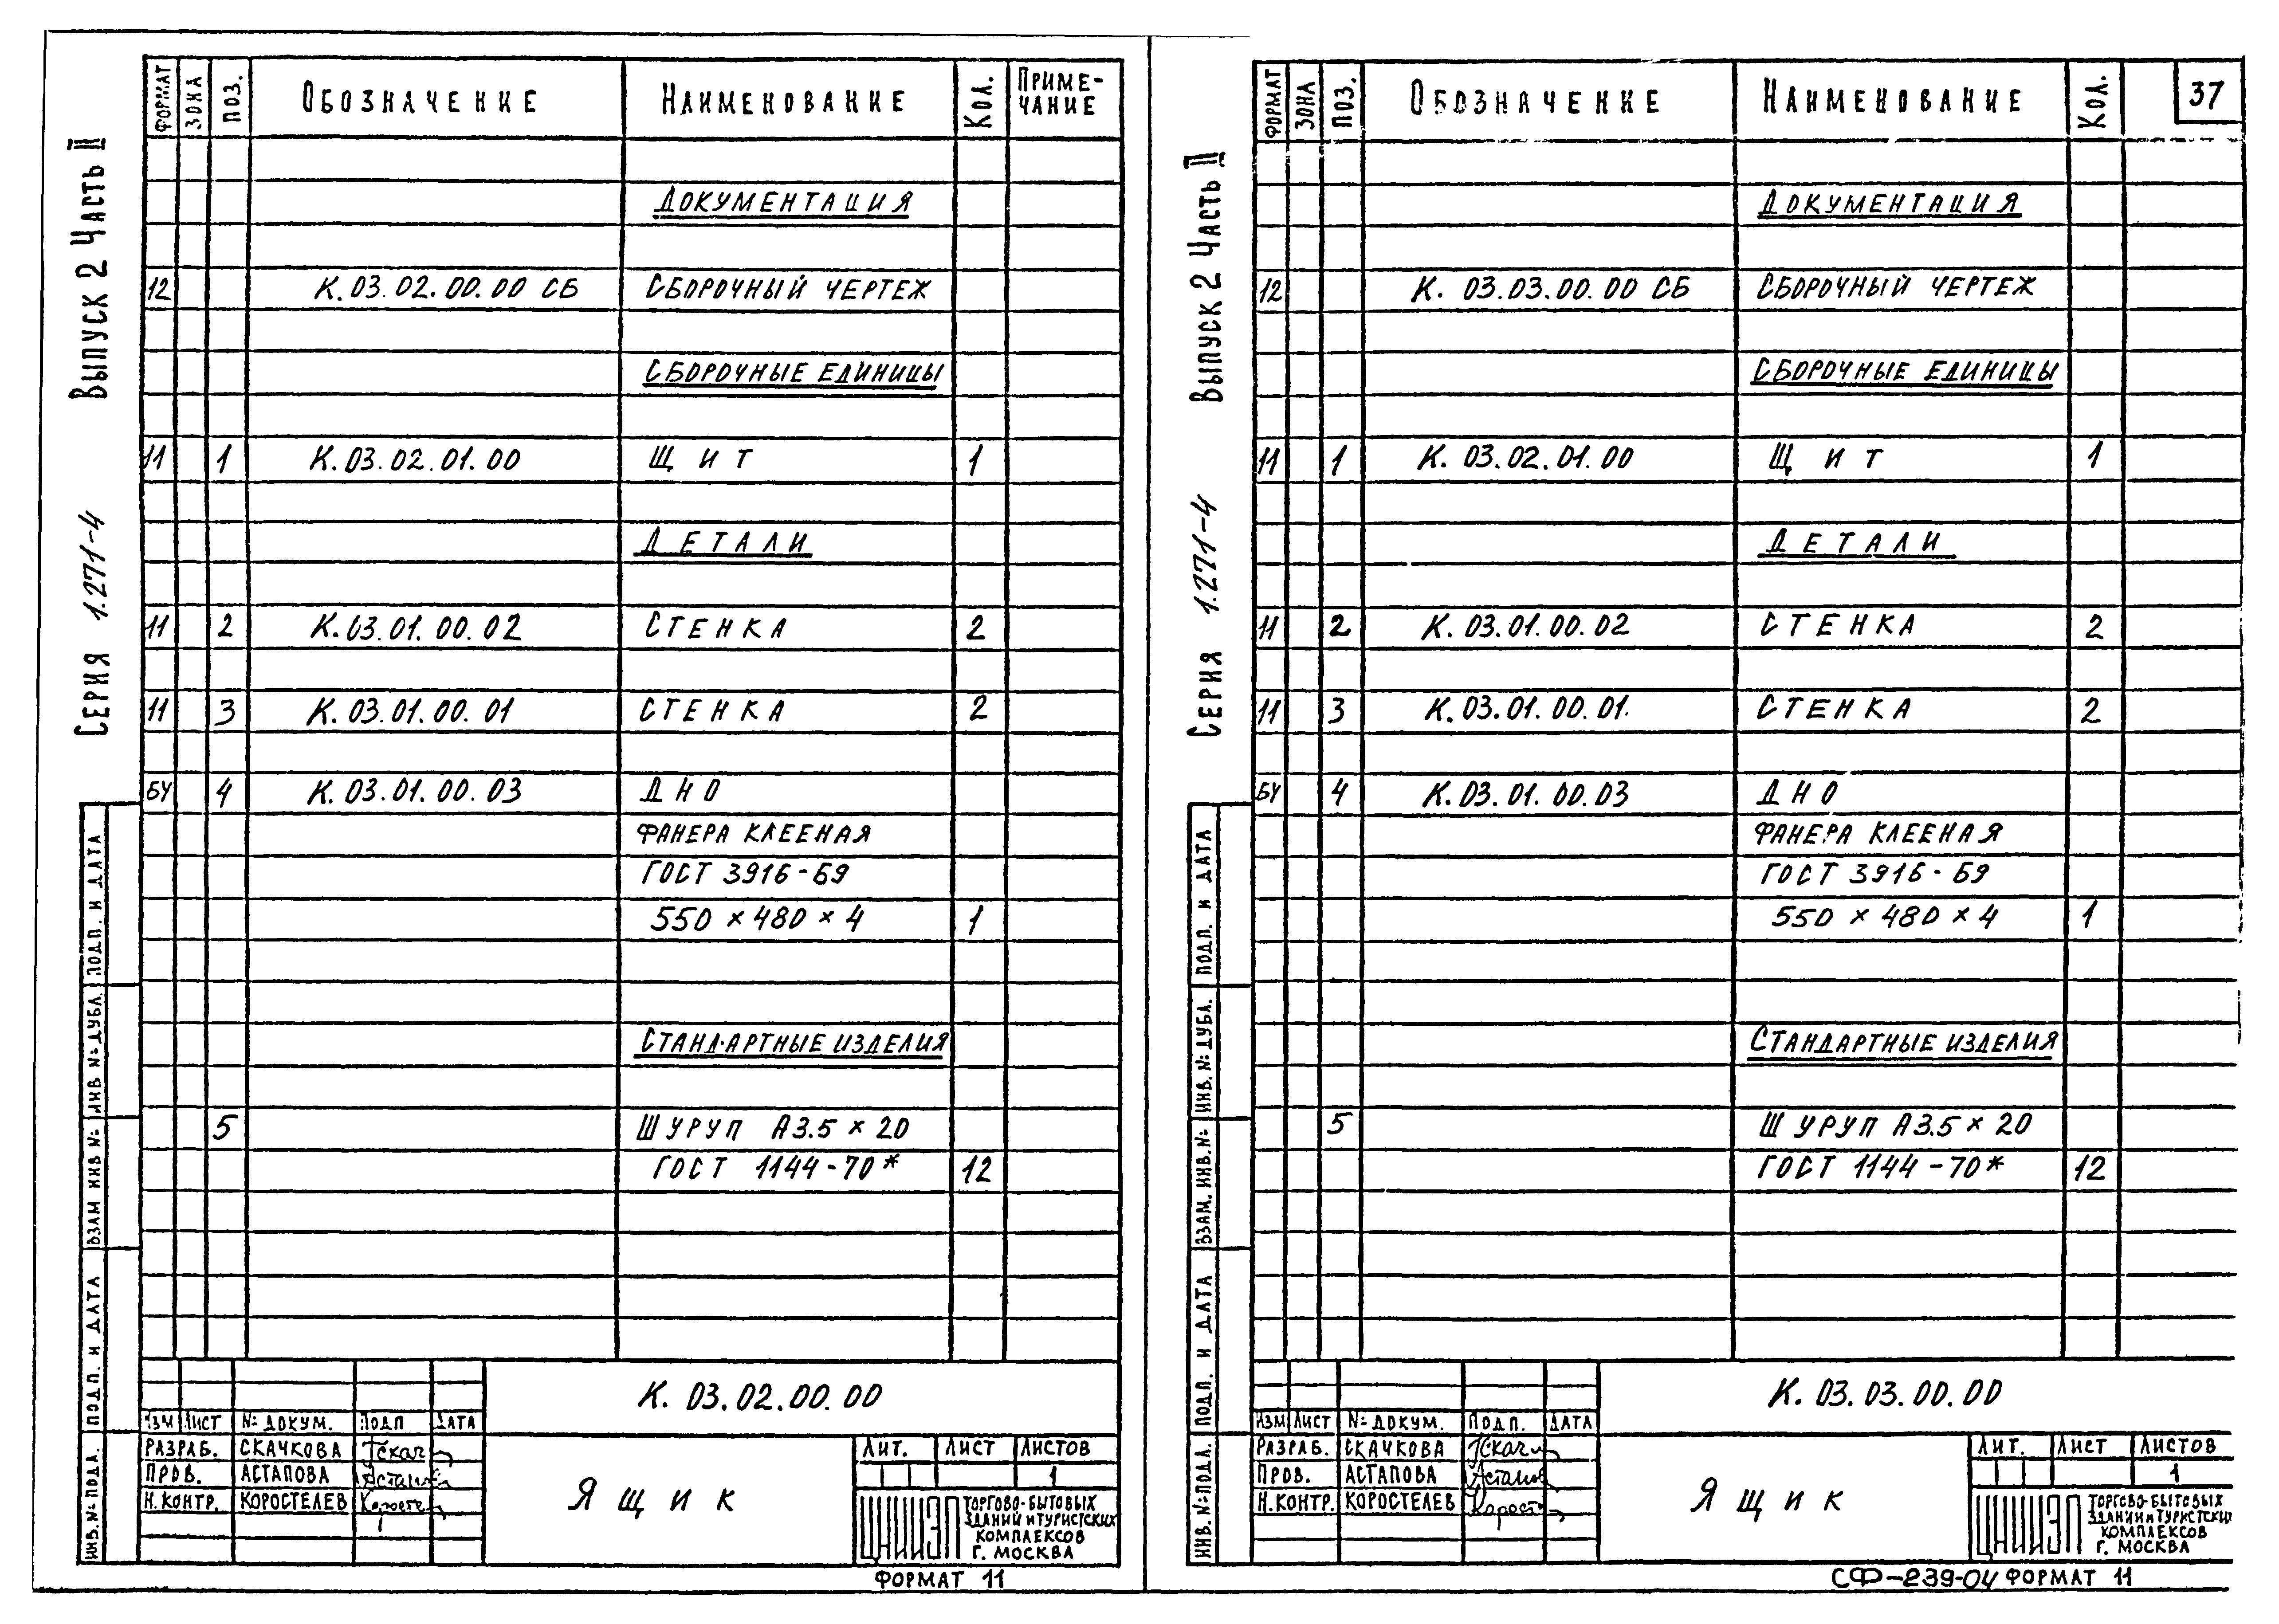 Серия 1.271-4 Выпуск 2 Часть II
ФОРМАТ ЗОНА ПОЗ. ОБОЗНАЧЕНИЕ НАИМЕНОВАНИЕ КОЛ. ПРИМЕ-
ЧАНИЕ
ДОКУМЕНТАЦИЯ
12 К.03.02.00.00 СБ СБОРОЧНЫЙ ЧЕРТЕЖ
СБОРОЧНЫЕ ЕДИНИЦЫ
11 1 К.03.02.01.00 ЩИТ 1
ДЕТАЛИ
11 2 К.03.01.00.02 СТЕНКА 2
11 3 К.03.01.00.01 СТЕНКА 2
БЧ 4 К.03.01.00.03 ДНО
ФАНЕРА КЛЕЕНАЯ
ГОСТ 3916-69
550 × 480 × 4 1
СТАНДАРТНЫЕ ИЗДЕЛИЯ
5 ШУРУП А3.5 × 20
ГОСТ 1144-70* 12
ИНВ. № ПОДЛ. ПОДП. И ДАТА ВЗАМ ИНВ № ИНВ № ДУБЛ. ПОДП. И ДАТА
К. 03.02.00.00
ИЗМ ЛИСТ № ДОКУМ. ПОДП ДАТА
РАЗРАБ. СКАЧКОВА
ПРОВ. АСТАПОВА
Н.КОНТР. КОРОСТЕЛЕВ
ЯЩИК
ЛИТ. ЛИСТ ЛИСТОВ
1
ЦНИИЭП ТОРГОВО-БЫТОВЫХ
ЗДАНИЙ И ТУРИСТСКИХ
КОМПЛЕКСОВ
Г. МОСКВА
ФОРМАТ 11
Серия 1.271-4 Выпуск 2 Часть II
ФОРМАТ ЗОНА ПОЗ. ОБОЗНАЧЕНИЕ НАИМЕНОВАНИЕ КОЛ. 37
ДОКУМЕНТАЦИЯ
12 К. 03.03.00.00 СБ СБОРОЧНЫЙ ЧЕРТЕЖ
СБОРОЧНЫЕ ЕДИНИЦЫ
11 1 К. 03.02.01.00 ЩИТ 1
ДЕТАЛИ
11 2 К. 03.01.00.02 СТЕНКА 2
11 3 К.03.01.00.01. СТЕНКА 2
БЧ 4 К.03.01.00.03 ДНО
ФАНЕРА КЛЕЕНАЯ
ГОСТ 3916-69
550 × 480 × 4 1
СТАНДАРТНЫЕ ИЗДЕЛИЯ
5 ШУРУП А3.5 × 20
ГОСТ 1144-70* 12
ИНВ. № ПОДЛ. ПОДП. И ДАТА ВЗАМ. ИНВ. № ИНВ. № ДУБЛ. ПОДП. И ДАТА
К. 03.03.00.00
ИЗМ ЛИСТ № ДОКУМ. ПОДП. ДАТА
РАЗРАБ. СКАЧКОВА
ПРОВ. АСТАПОВА
Н.КОНТР. КОРОСТЕЛЕВ
ЯЩИК
ЛИТ. ЛИСТ ЛИСТОВ
1
ЦНИИЭП ТОРГОВО-БЫТОВЫХ
ЗДАНИЙ И ТУРИСТСКИХ
КОМПЛЕКСОВ
Г. МОСКВА
СФ-239-04 ФОРМАТ 11